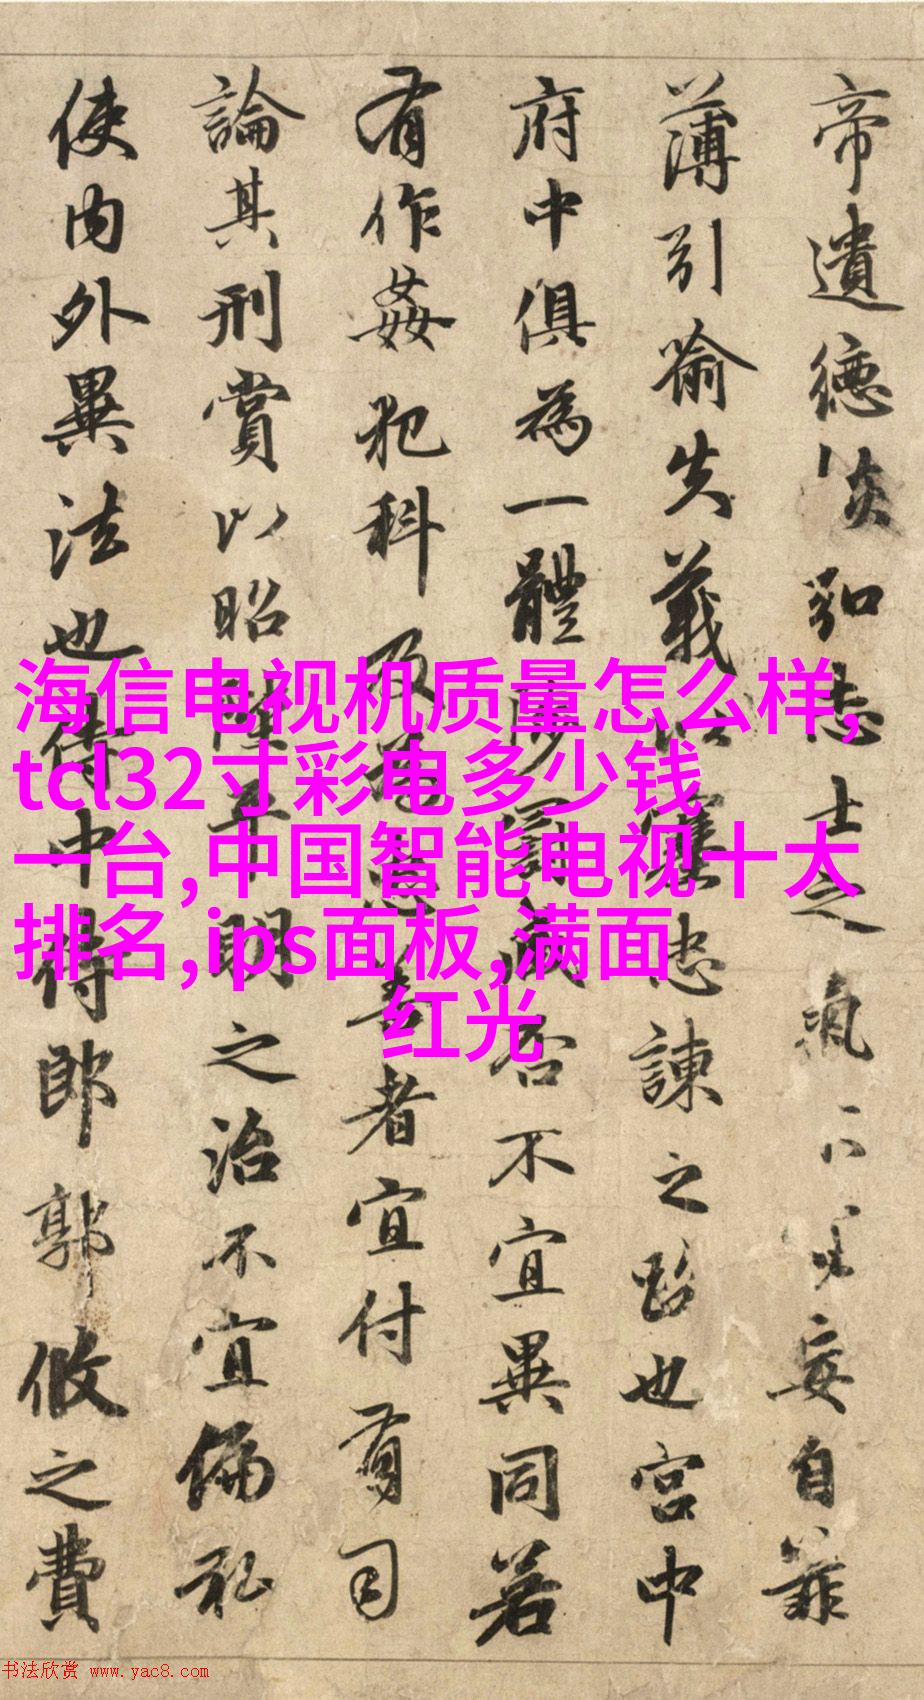 帝遺德恢弘志士之氣不宜妄自菲
薄引喻失義以塞忠諫之路也宮中
府中俱為一體陟罰臧否不宜異同若
有作姦犯科及為忠善者宜付有司
論其刑賞以昭陛平明之治不宜偏私
使内外異法也侍中侍郎郭攸之費
海信电视机质量怎么样,
tcl32寸彩电多少钱
一台,中国智能电视十大
排名,ips面板,满面
红光
书法欣赏 www.yac8.com